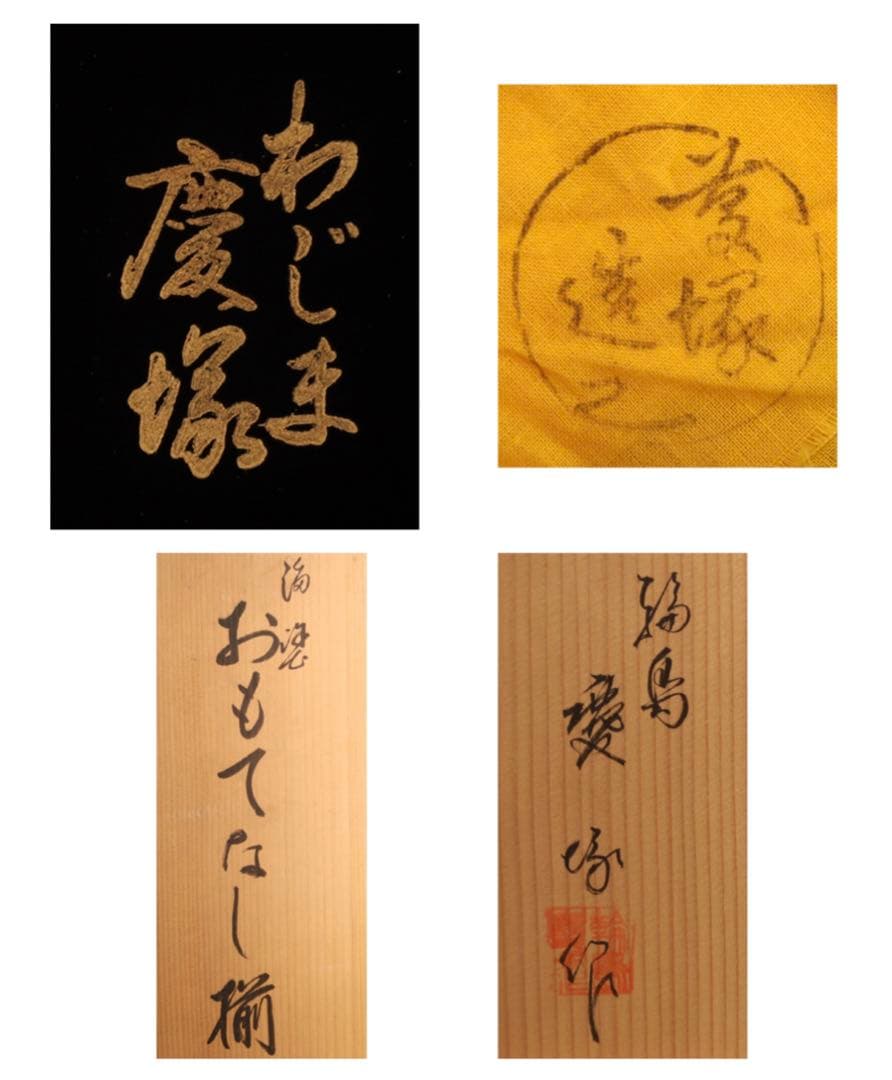 わじま
慶塚
慶塚
海塗
おもてなし揃
輪島
慶塚作